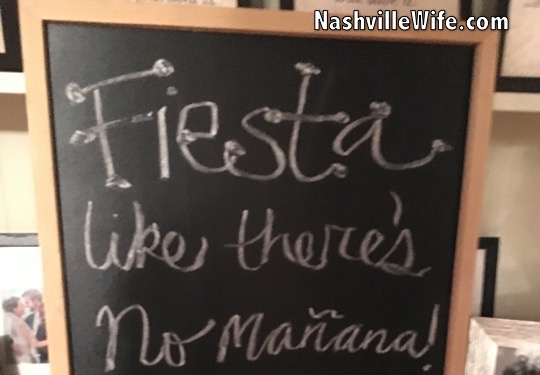 NashvilleWife.com
Fiesta
like there's
No Mañana!